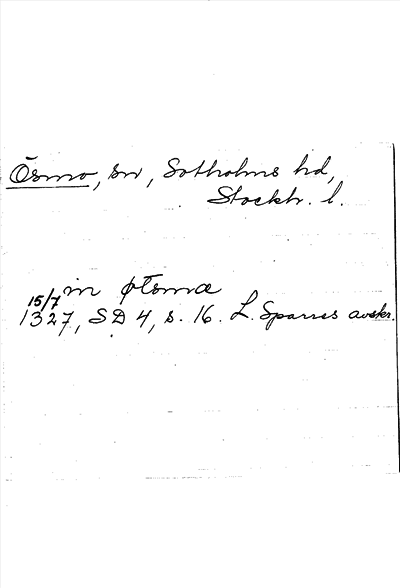 Ösmo, sn, Sotholms hd,
Stockh. l.
in øtsmæ
15/7
1327, SD 4, s. 16. L. Sparres avskr.